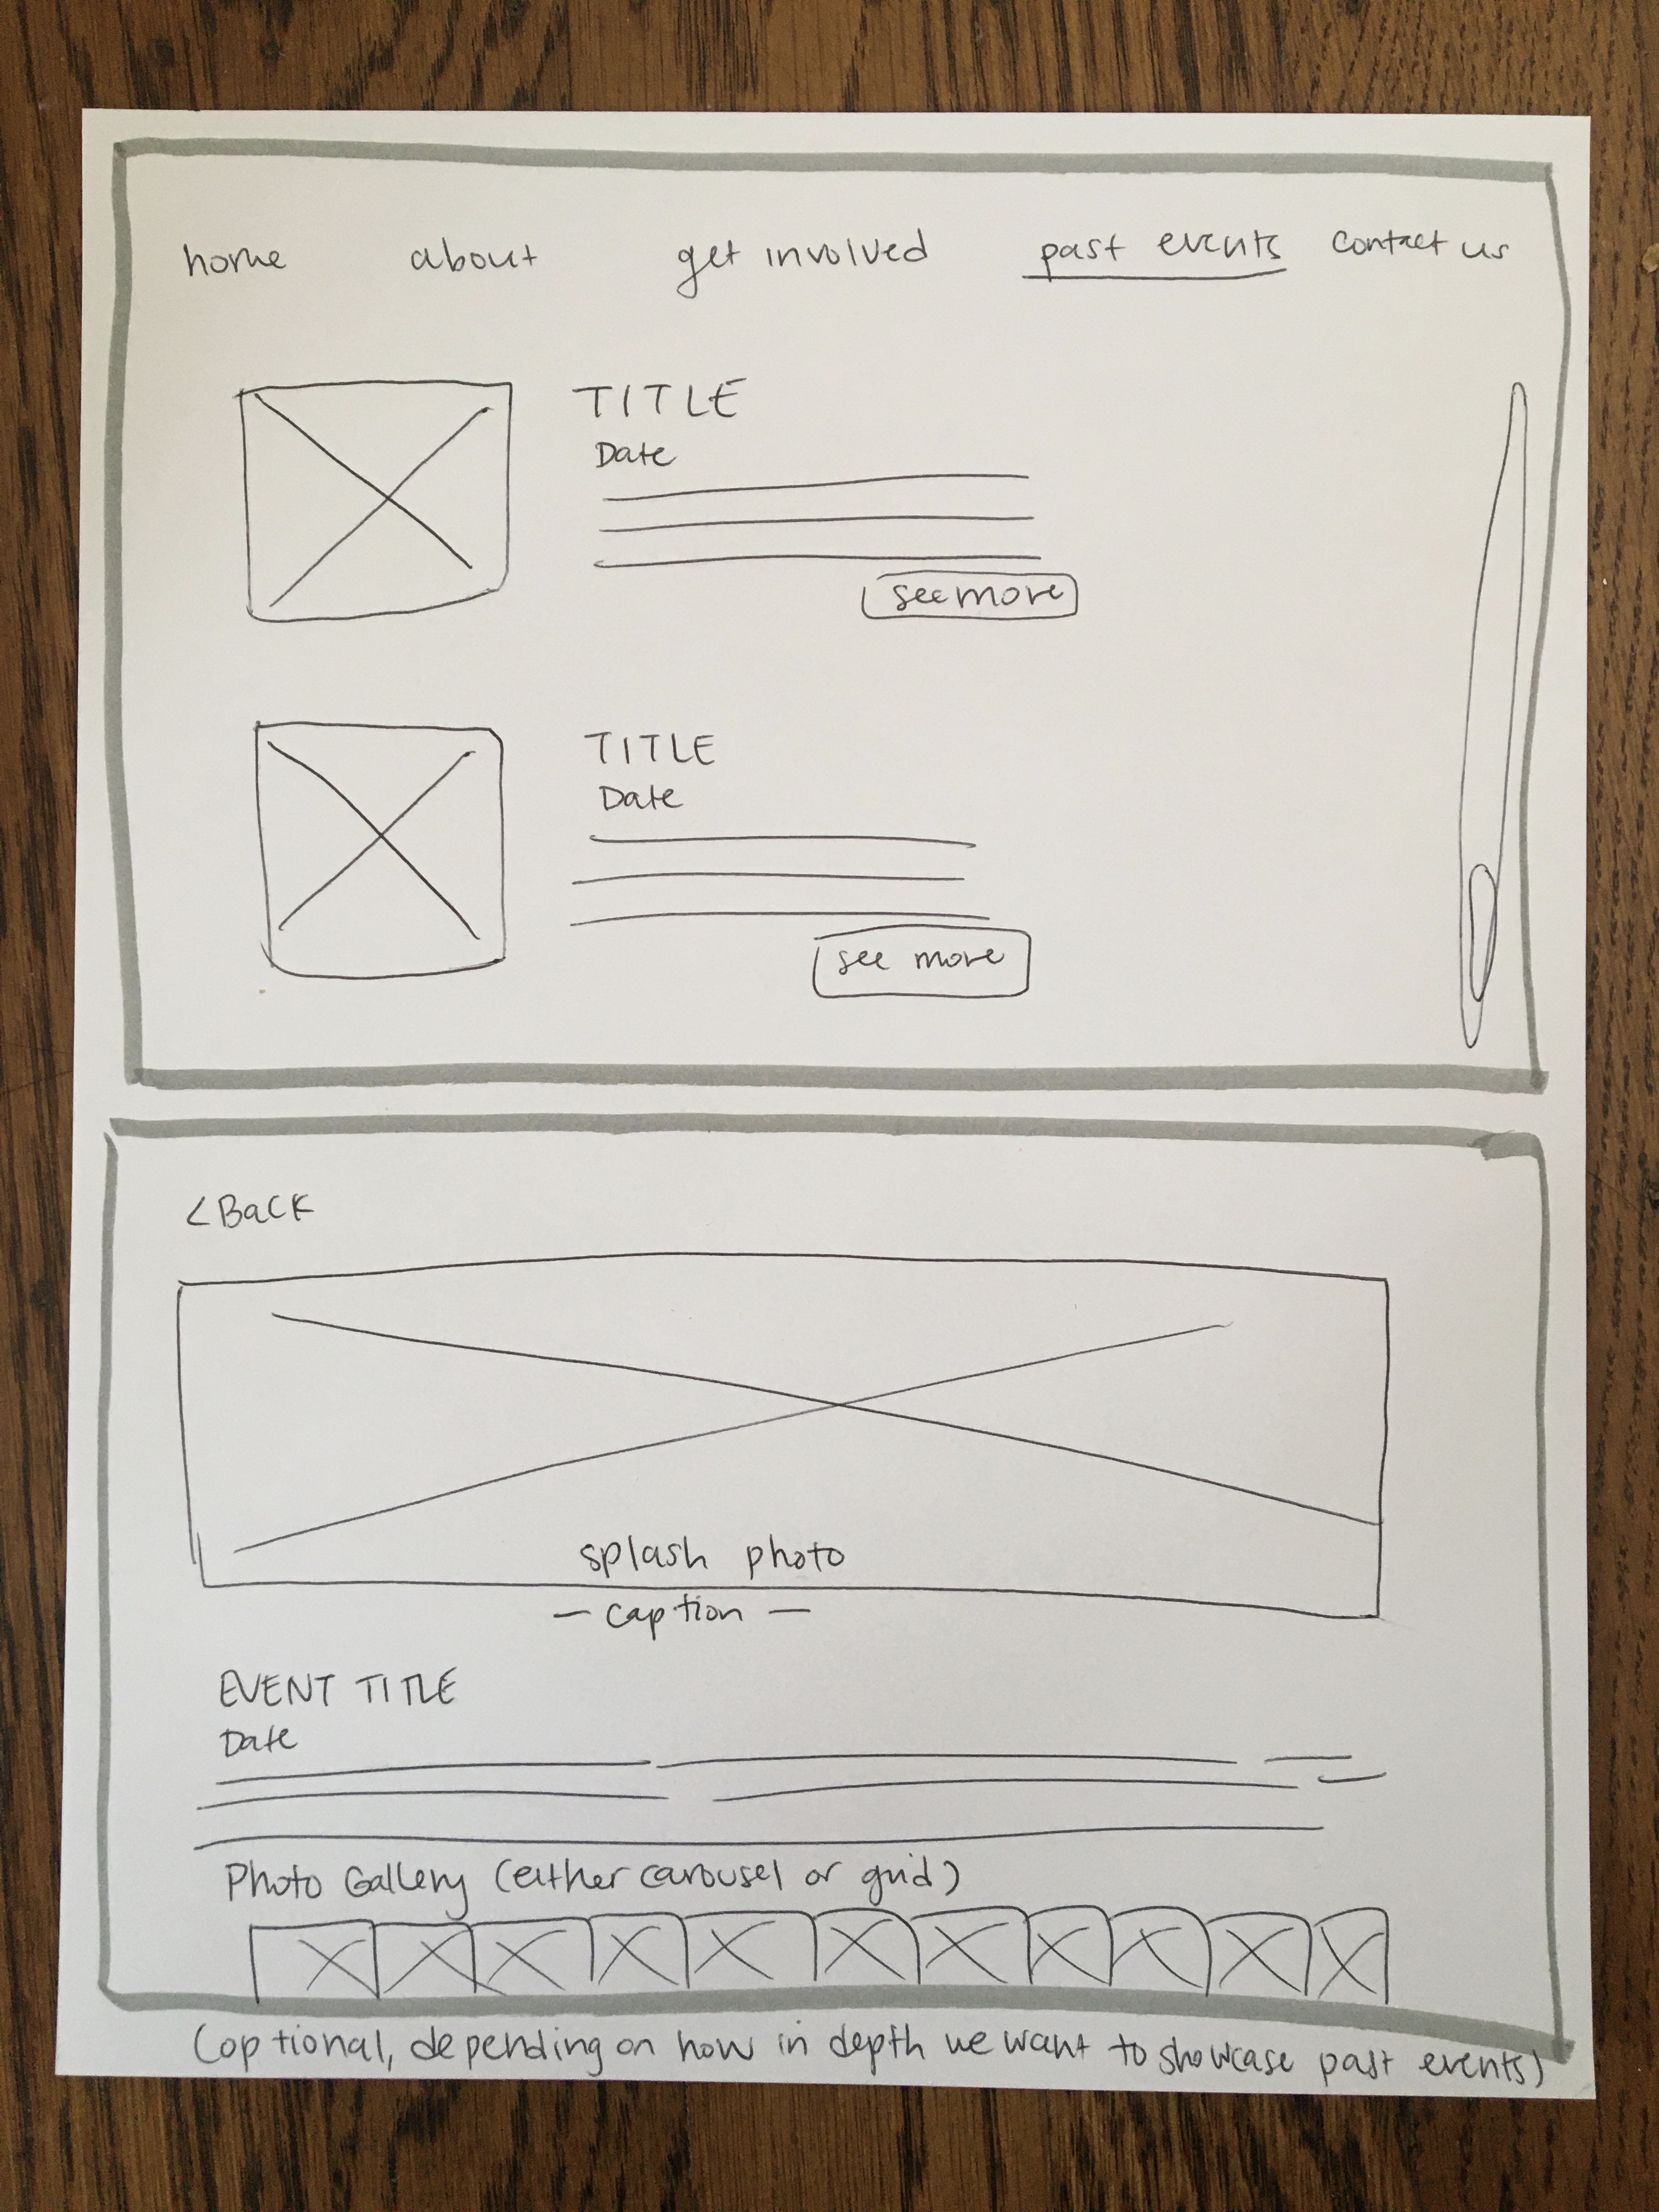 home about get involved past events contact us
TITLE
Date
see more
TITLE
Date
see more
< Back
splash photo
— caption —
EVENT TITLE
Date
Photo Gallery (either carousel or grid)
(optional, depending on how in depth we want to showcase past events)